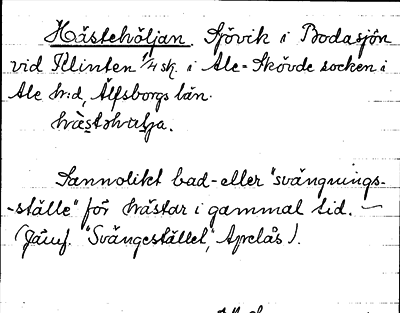 Hästehvöljan. Sjövik i Bodasjön
vid Klinten 1/4 sk. i Ale-Skövde socken i
Ale h:d, Älfsborgs län.
Sannolikt bad- eller "svängnings-
-ställe" för hästar i gammal tid. —
(Jämf. "Svängestället", Apelås).